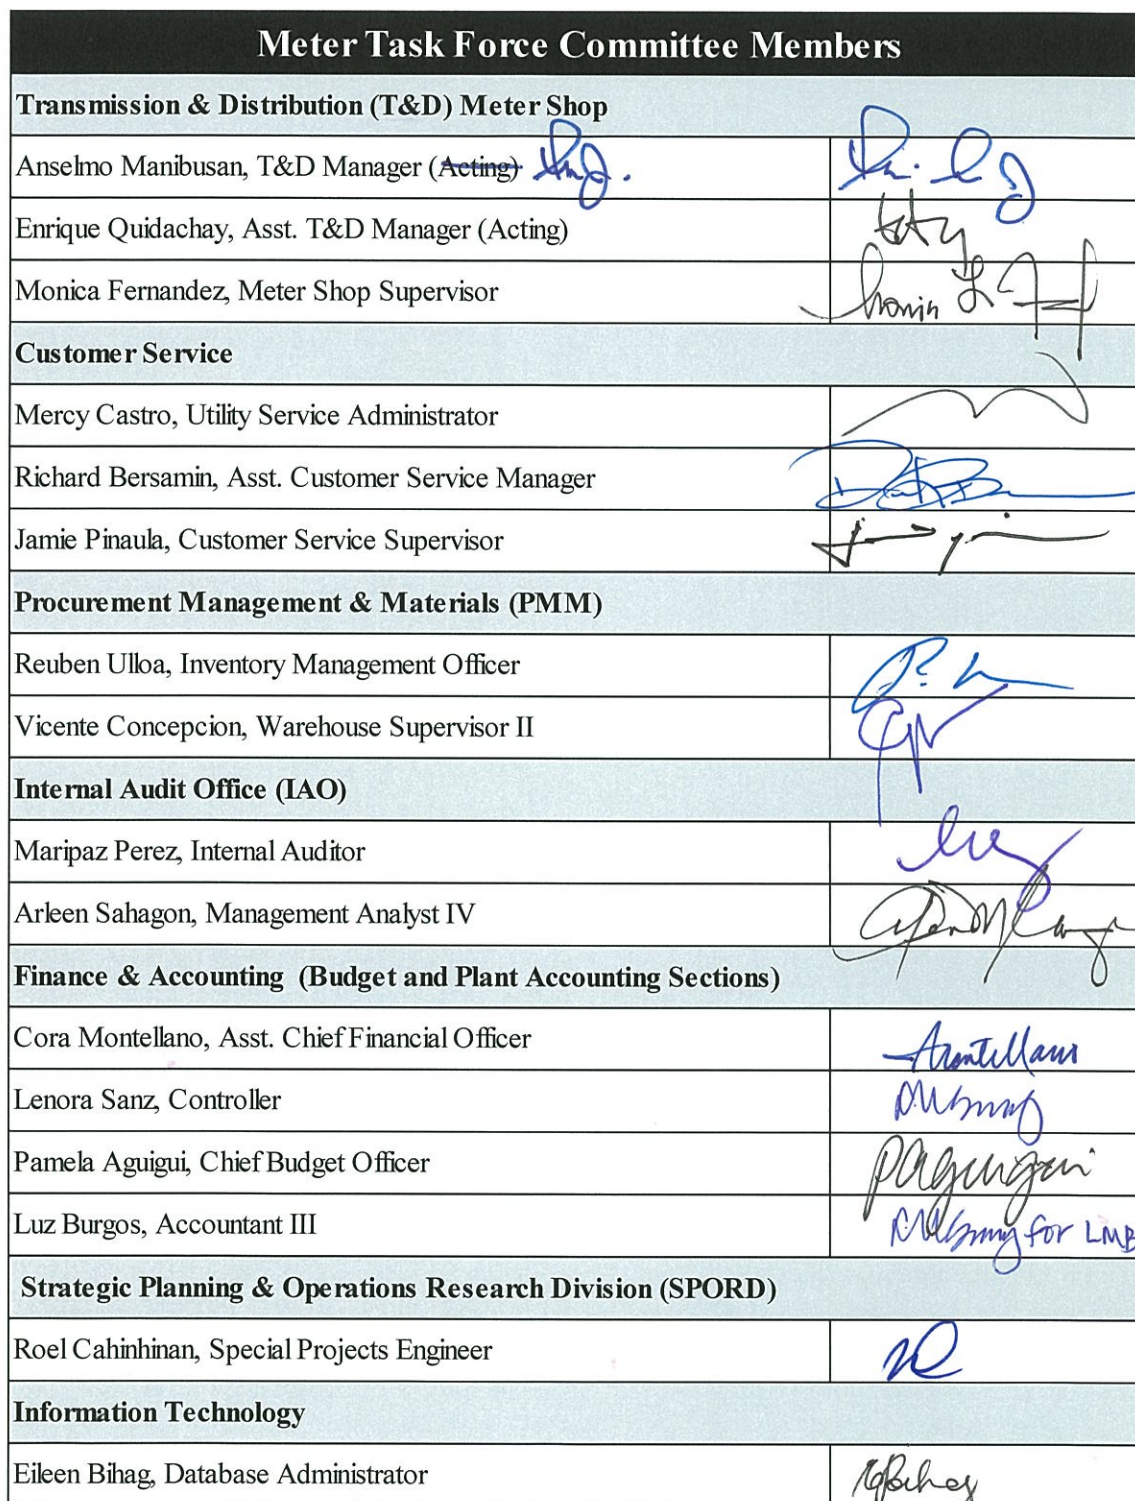 Meter Task Force Committee Members
Transmission & Distribution (T&D) Meter Shop
Anselmo Manibusan, T&D Manager (Acting)
Enrique Quidachay, Asst. T&D Manager (Acting)
Monica Fernandez, Meter Shop Supervisor
Customer Service
Mercy Castro, Utility Service Administrator
Richard Bersamin, Asst. Customer Service Manager
Jamie Pinaula, Customer Service Supervisor
Procurement Management & Materials (PMM)
Reuben Ulloa, Inventory Management Officer
Vicente Concepcion, Warehouse Supervisor II
Internal Audit Office (IAO)
Maripaz Perez, Internal Auditor
Arleen Sahagon, Management Analyst IV
Finance & Accounting (Budget and Plant Accounting Sections)
Cora Montellano, Asst. Chief Financial Officer
Lenora Sanz, Controller
Pamela Aguigui, Chief Budget Officer paguigui
Luz Burgos, Accountant III for LMB
Strategic Planning & Operations Research Division (SPORD)
Roel Cahinhinan, Special Projects Engineer
Information Technology
Eileen Bihag, Database Administrator